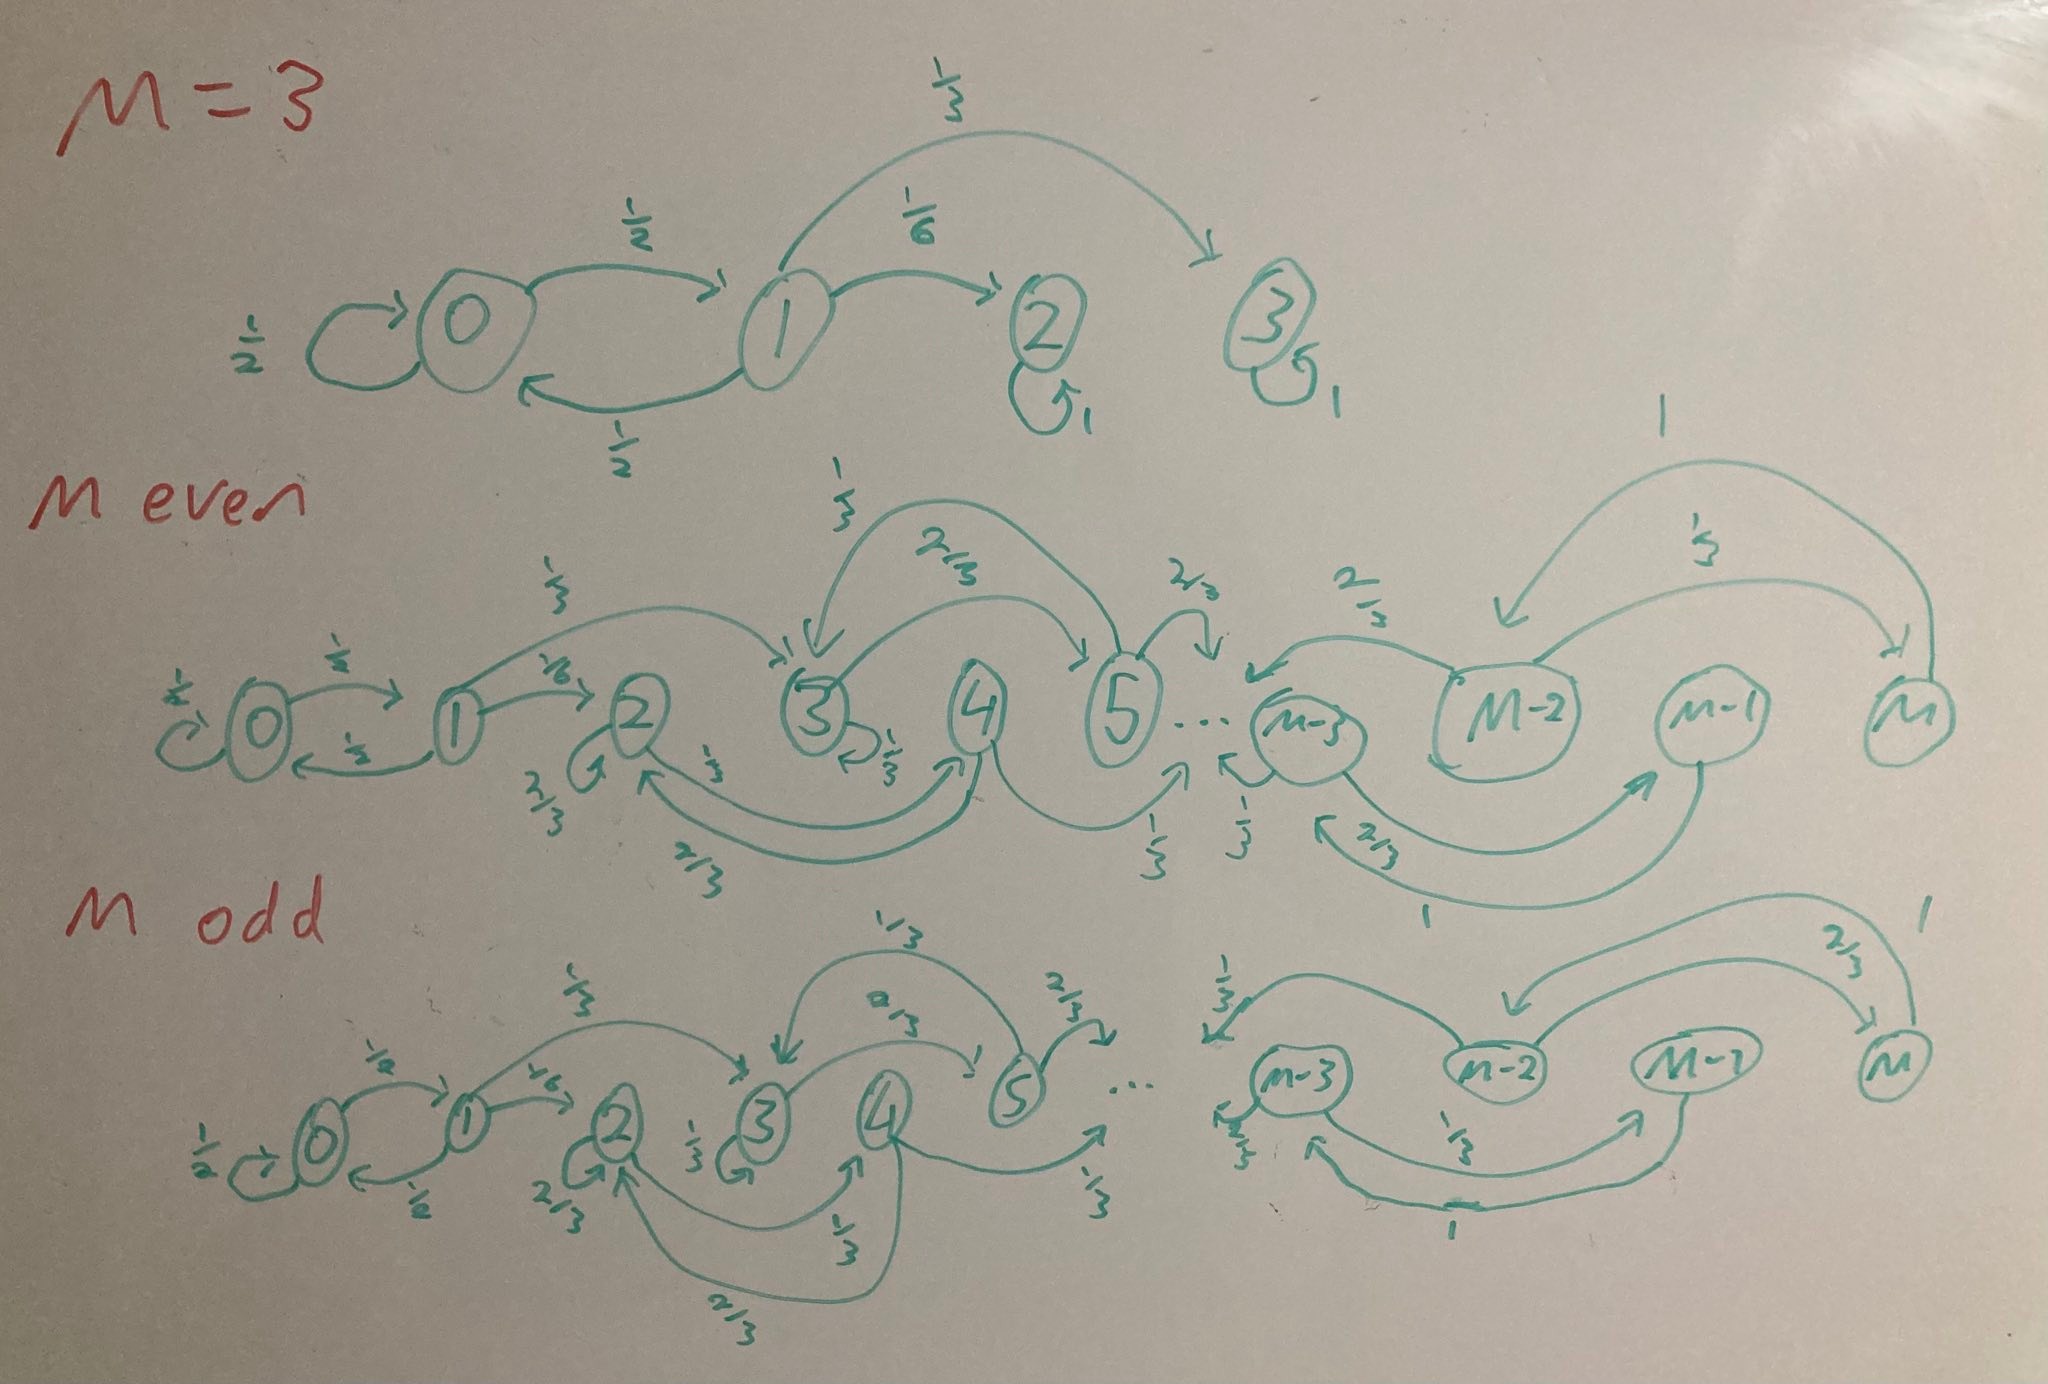 M = 3
1/3
1/2
1/6
1/2
0
1
2
3
1
1
1/2
M even
1
1/3
2/3
1/3
1/3
2/3
2/3
1/2
1/2
1/6
0
1
2
3
4
5
...
M-3
M-2
M-1
M
1/3
1/3
2/3
2/3
1/3
1/3
2/3
1
M odd
1/3
1
2/3
1/3
2/3
2/3
1/3
1/2
1/6
0
1
2
3
4
5
...
M-3
M-2
M-1
M
1/2
1/2
1/3
2/3
1/3
1/3
2/3
1/3
1
2/3